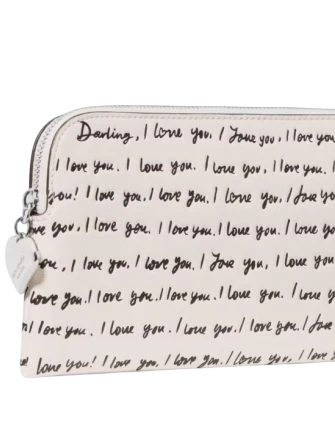 Darling, I love you. I love you, I love you.
I love you. I love you. I love you, I love you. I
you! I love you, I love you. I love you, I love you
love you, I love you. I love you. I love you. I love
you, I love you. I love you. I love you, I love you
love you. I love you. I love you. I love you. I love y
I love you. I love you. I love you. I love you. I love
love you! I love you. I love you. I love you, I love